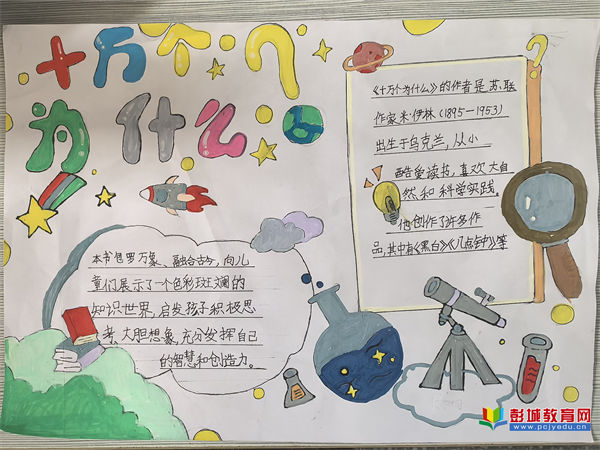 十万个?
为什么
《十万个为什么》的作者是苏联
作家米·伊林(1895—1953)
出生于乌克兰,从小
酷爱读书,喜欢大自
然和科学实践。
他创作了许多作
品,其中有《黑白》《几点钟》等
本书包罗万象、融合古今,向儿
童们展示了一个色彩斑斓的
知识世界,启发孩子积极思
考、大胆想象,充分发挥自己
的智慧和创造力。
彭城教育网
www.pcjyedu.cn